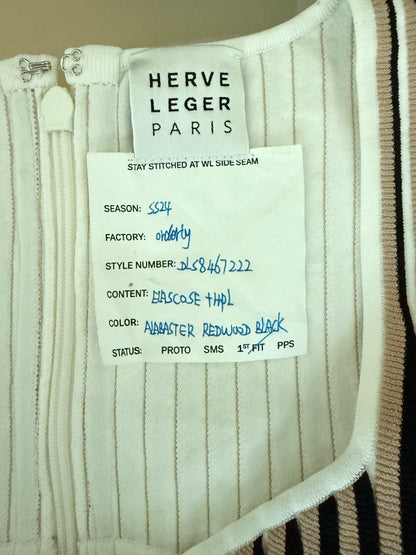 HERVE
LEGER
PARIS
STAY STITCHED AT WL SIDE SEAM
SEASON: SS24
FACTORY:
STYLE NUMBER: DLS8467222
CONTENT: ELASCOSE + HPL
COLOR: ALABASTER REDWOOD BLACK
STATUS: PROTO SMS 1ST FIT PPS